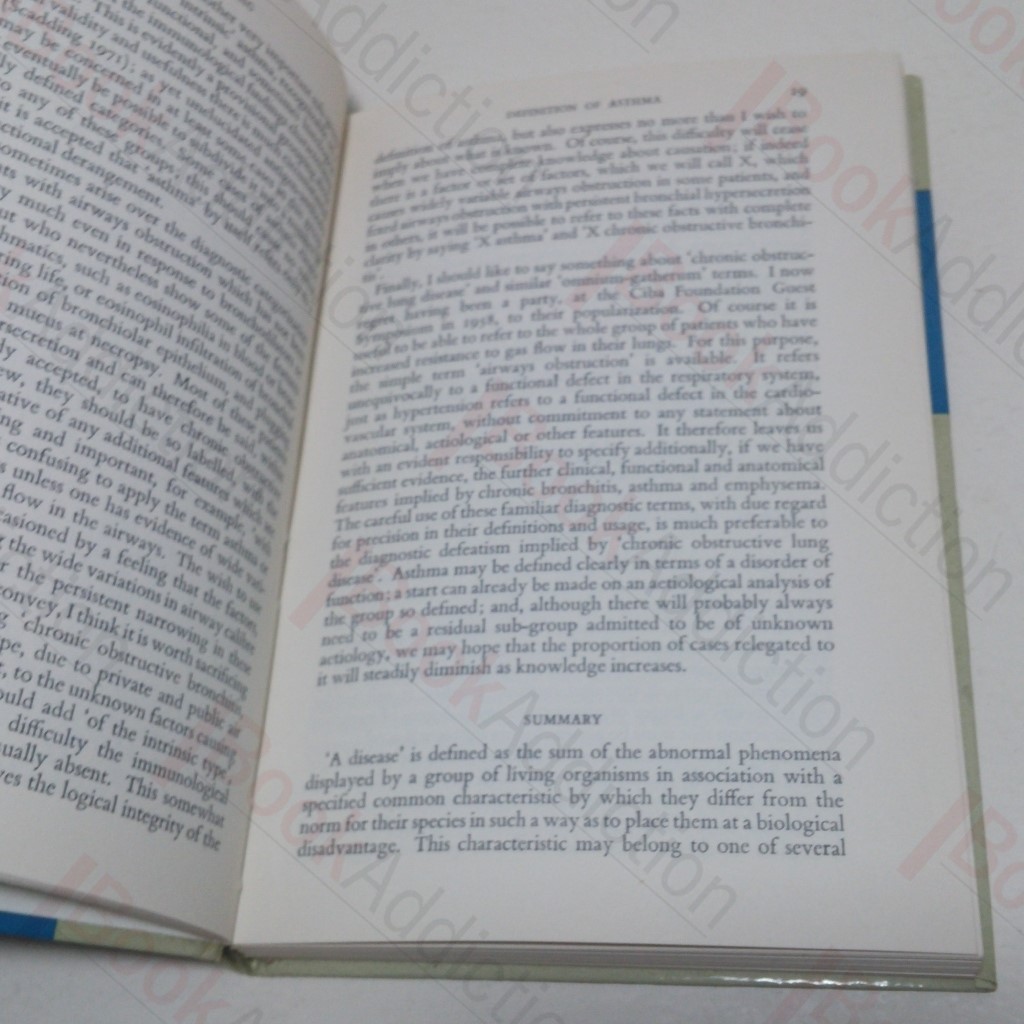 other was
intrinsic, and
the functional, and, except
the immunological findings
This is evidently a provisional
validity and usefulness
(Scadding 1971); as yet unelucidated
may be concerned in at least some
eventually be possible to subdivide
ly defined categories. Some cases
o any of these groups; this should
it is accepted that 'asthma' by itself
ctional derangement.
sometimes arise over the diagnostic
nts with airways obstruction which
y much even in response to
ut who nevertheless show some of the
thmatics, such as eosinophilia in blood or
ring life, or eosinophil infiltration of
tion of bronchiolar epithelium, and
mucus at necropsy. Most of these
rsecretion and can therefore be said,
ly accepted, to have chronic
ew, they should be so labelled, with the
ative of any additional features which
ing and important, for example, 'with
confusing to apply the term asthma
s unless one has evidence of wide vari-
flow in the airways. The wish to use
casioned by a feeling that the factors
g the wide variations in airway calibre
r the persistent narrowing in these
convey, I think it is worth sacrificing
g 'chronic obstructive bronchitis,
pe, due to private and public air
, to the unknown factors causing
ould add 'of the intrinsic type,
difficulty the immunological
ually absent. This somewhat
ves the logical integrity of the
DEFINITION OF ASTHMA 29
definition of asthma, but also expresses no more than I wish to
imply about what is known. Of course, this difficulty will cease
when we have complete knowledge about causation; if indeed
there is a factor or set of factors, which we will call X, which
causes widely variable airways obstruction in some patients, and
fixed airways obstruction with persistent bronchial hypersecretion
in others, it will be possible to refer to these facts with complete
clarity by saying 'X asthma' and 'X chronic obstructive bronchi-
tis'.
Finally, I should like to say something about 'chronic obstruc-
tive lung disease' and similar 'omnium-gatherum' terms. I now
regret having been a party, at the Ciba Foundation Guest
Symposium in 1958, to their popularization. Of course it is
useful to be able to refer to the whole group of patients who have
increased resistance to gas flow in their lungs. For this purpose,
the simple term 'airways obstruction' is available. It refers
unequivocally to a functional defect in the respiratory system,
just as hypertension refers to a functional defect in the cardio-
vascular system, without commitment to any statement about
anatomical, aetiological or other features. It therefore leaves us
with an evident responsibility to specify additionally, if we have
sufficient evidence, the further clinical, functional and anatomical
features implied by chronic bronchitis, asthma and emphysema.
The careful use of these familiar diagnostic terms, with due regard
for precision in their definitions and usage, is much preferable to
the diagnostic defeatism implied by 'chronic obstructive lung
disease'. Asthma may be defined clearly in terms of a disorder of
function; a start can already be made on an aetiological analysis of
the group so defined; and, although there will probably always
need to be a residual sub-group admitted to be of unknown
aetiology, we may hope that the proportion of cases relegated to
it will steadily diminish as knowledge increases.
SUMMARY
'A disease' is defined as the sum of the abnormal phenomena
displayed by a group of living organisms in association with a
specified common characteristic by which they differ from the
norm for their species in such a way as to place them at a biological
disadvantage. This characteristic may belong to one of several
BookAddiction